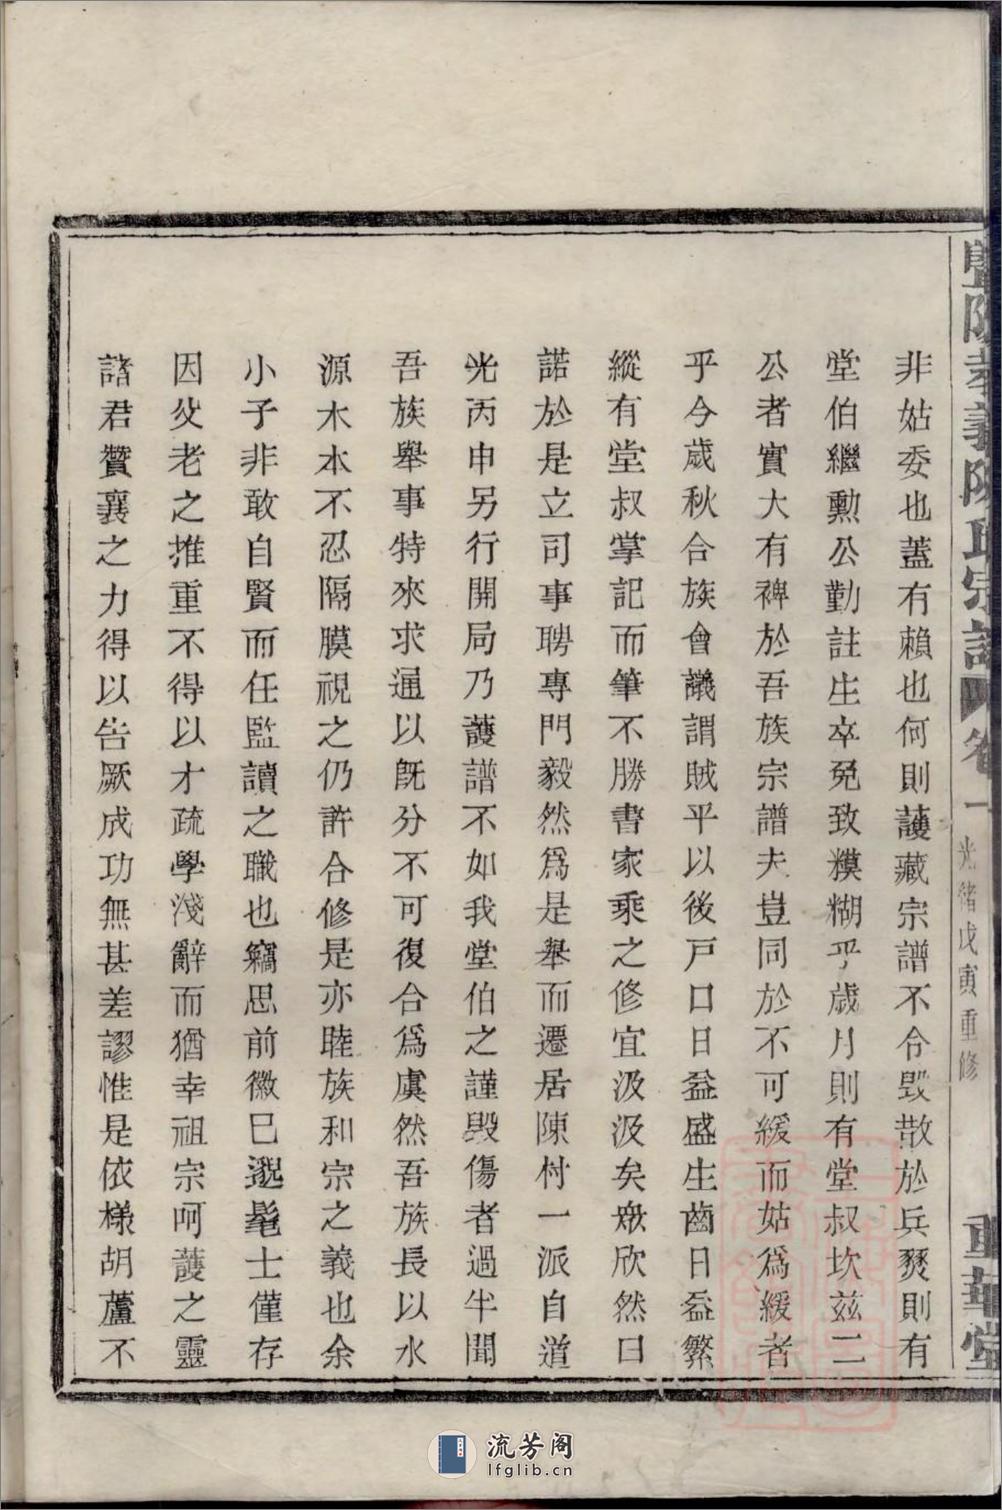 暨陽孝義陳氏宗譜 卷一 光緒戊寅重修 重華堂
非姑委也蓋有賴也何則護藏宗譜不令毀散於兵燹則有
堂伯繼勳公勤註生卒免致糢糊乎歲月則有堂叔坎茲二
公者實大有裨於吾族宗譜夫豈同於不可緩而姑爲緩者
乎今歲秋合族會議謂賊平以後戸口日益盛生齒日益繁
縱有堂叔掌記而筆不勝書家乘之修宜汲汲矣燉欣然曰
諾於是立司事聘專門毅然爲是舉而遷居陳村一派自道
光丙申另行開局乃護譜不如我堂伯之謹毀傷者過半聞
吾族舉事特來求通以旣分不可復合爲虞然吾族長以水
源木本不忍隔膜視之仍許合修是亦睦族和宗之義也余
小子非敢自賢而任監讀之職也竊思前徽已邈髦士僅存
因父老之推重不得以才疏學淺辭而猶幸祖宗呵護之靈
諸君贊襄之力得以告厥成功無甚差謬惟是依樣胡蘆不
流芳阁
lfglib.cn